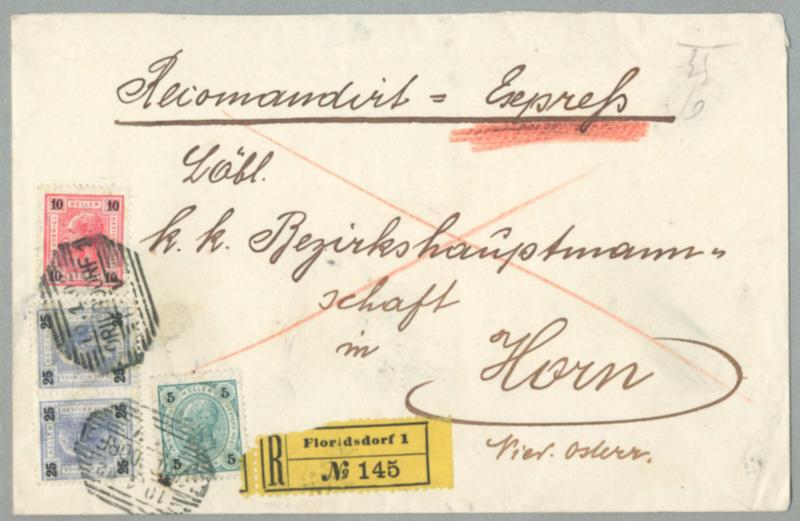 Recomandirt = Expreß
Löbl.
k. k. Bezirkshauptmann=
schaft
in
Horn
Nied. Österr.
10 HELLER 10
10 10
25 25
25 25
5 HELLER 5
5 5
R Floridsdorf 1
№ 145